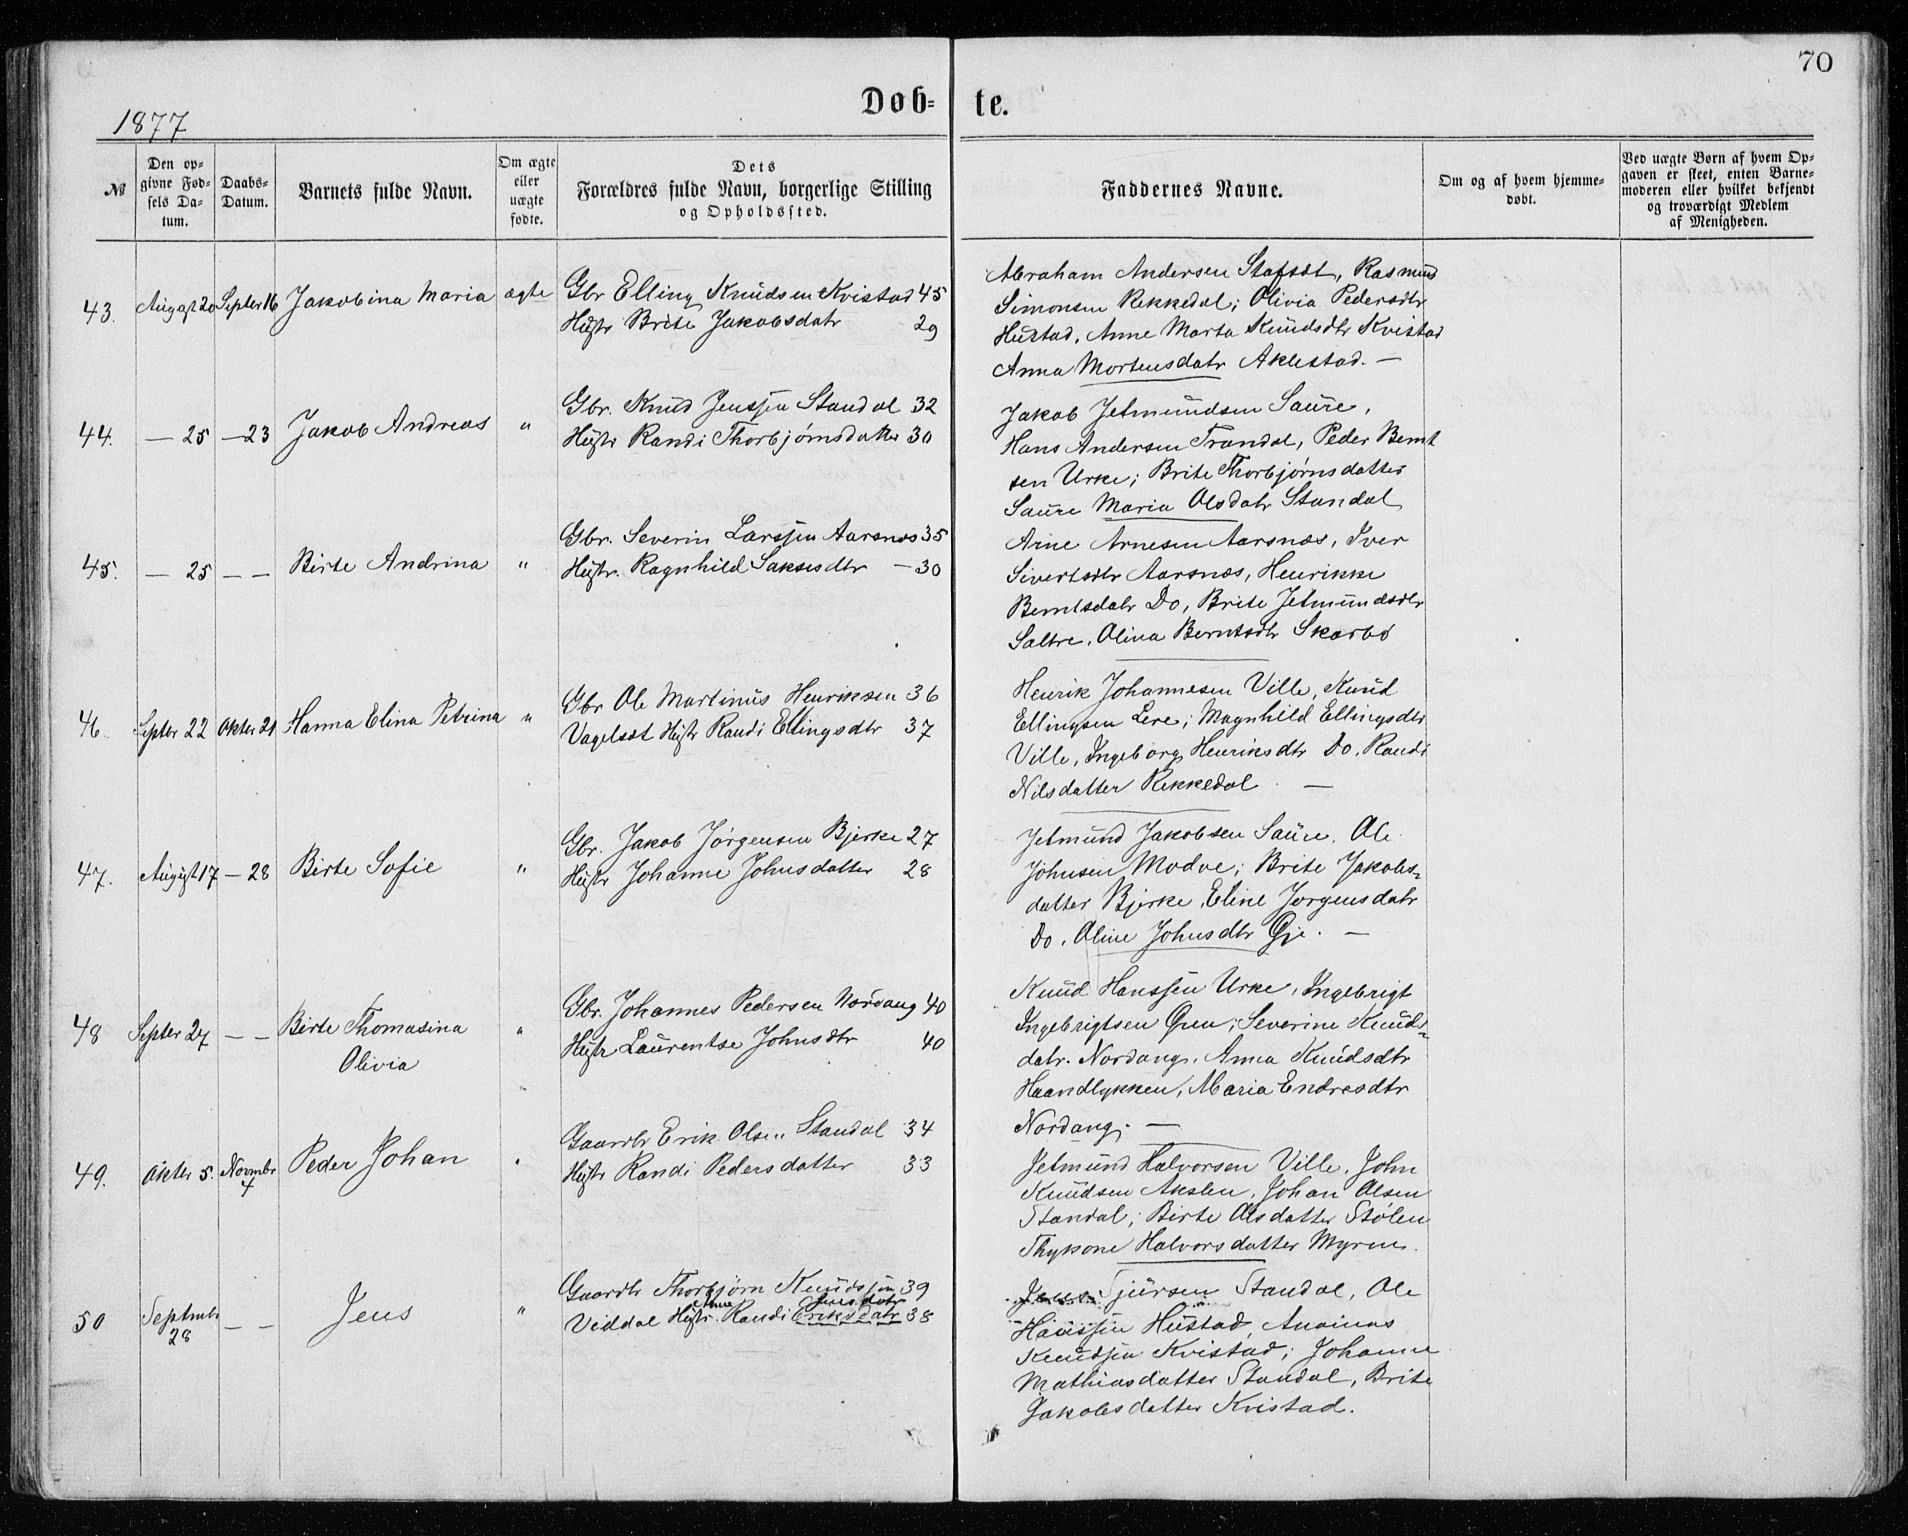 70
Døb-
te.
1877
№
Den op-
givne Fød-
sels Da-
tum.
Daabs-
Datum.
Barnets fulde Navn.
Om ægte
eller
uægte
fødte.
Dets
Forældres fulde Navn, borgerlige Stilling
og Opholdssted.
Faddernes Navne.
Om og af hvem hjemme-
døbt.
Ved uægte Børn af hvem Op-
gaven er skeet, enten Barne-
moderen eller hvilket bekjendt
og troværdigt Medlem
af Menigheden.
43. August 20 Septer 16 Jakobina Maria ægte
Gbr Elling Knudsen Kvistad 45
Hustr Brite Jakobsdatr 29
Abraham Andersen Stafsæt, Rasmus
Simonsen Rekkedal; Olivia Pedersdtr
Hustad, Anne Marta Knudsdtr Kvistad
Anna Mortensdatr Aklestad. —
44. — 25 — 23 Jakob Andreas "
Gbr. Knud Jenssen Standal 32
Hustr Randi Thorbjørnsdatter 30
Jakob Jetmundsen Saure,
Hans Andersen Trandal, Peder Bernt
sen Urke; Brite Thorbjørnsdatter
Saure Maria Olsdatr Standal
45. — 25 — — Birte Andrina "
Gbr. Severin Larssen Aarsnes 35
Hustr. Ragnhild Saksesdtr — 30
Arne Arnesen Aarsnæs, Iver
Sivertsdtr Aarsnæs, Henrikke
Berntsdatr Do, Brite Jetmundsdtr
Saltre, Olina Berntsdtr Skarbø
46. Septer 22 Okter 21 Hanna Elina Petrina "
Gbr Ole Martinus Henriksen 36
Vagelsæt Hustr Randi Ellingsdtr 37
Henrik Johannesen Ville, Knud
Ellingsen Lere; Magnhild Ellingsdtr
Ville, Ingeborg Henriksdtr Do, Randi
Nilsdatter Rekkedal —
47. August 17 — 28 Birte Sofie "
Gbr. Jakob Jørgensen Bjerke 27
Hustr Johanne Johnsdatter 28
Jetmund Jakobsen Saure, Ole
Johnsen Modve; Brite Jakobs-
datter Bjerke, Eline Jørgensdatr
Do, Oline Johnsdtr Øje. —
48 Septer 27 — — Birte Thomasina "
Olivia
Gbr. Johannes Pedersen Nordang 40
Hustr Laurentse Johnsdtr 40
Knud Hanssen Urke, Ingebrigt
Ingebrigtsen Øren; Severine Knuds-
datr. Nordang, Anna Knudsdtr
Haandlykken, Maria Endresdtr
Nordang. —
49. Okter 5. Novmbr 4 Peder Johan "
Gaardbr Erik Olsen Standal 34
Hustr Randi Pedersdatter 33
Jetmund Halvorsen Ville, John
Knudsen Akslen, Johan Olsen
Standal; Birte Olsdatter Stølen
Halvorsdatter Myren.
50 Septmbr 28 — — Jens "
Gaardbr Thorbjørn Knudssen 39
Viddal Hustr. Randi Eriksdatr 38
Jens Sjursen Standal, Ole
Hanssen Hustad,
Knudsen Kvistad; Johanne
Mathiasdatter Standal, Brite
Jakobsdatter Kvistad.